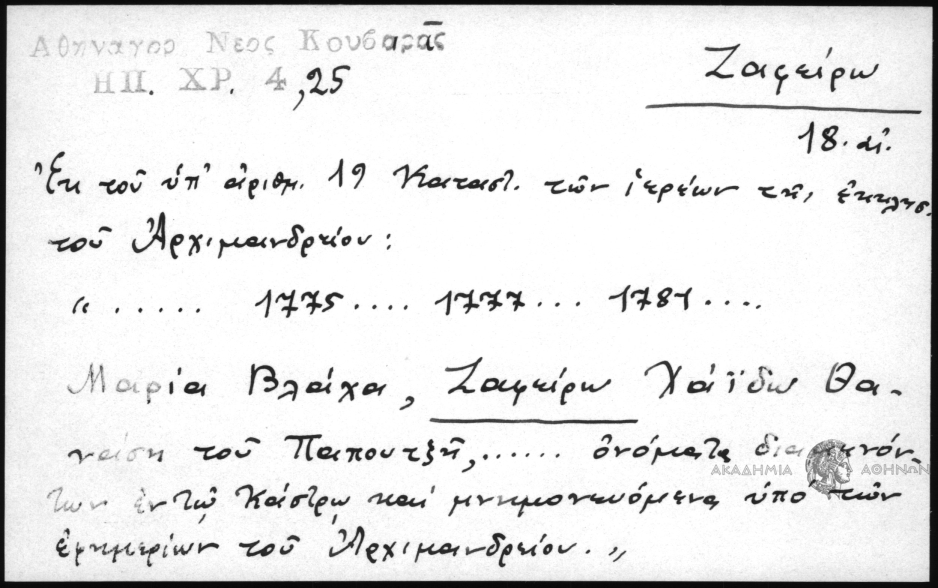 Αθηναγορ Νεος Κουβαρᾶς
ΗΠ. ΧΡ. 4, 25
Ζαφείρω
18. αἰ.
Ἐκ τοῦ ὑπ' ἀριθμ. 19 Καταστ. τῶν ἱερέων τῆς ἐκκλησ.
τοῦ Ἀρχιμανδρείου:
"..... 1775.... 1777... 1781....
Μαρία Βλάχα, Ζαφείρω Χάϊδω Θα-
νάση τοῦ Παπουτζῆ,...... ὀνόματα
των ἐν τῷ Κάστρῳ καὶ μνημονευόμενα ὑπὸ τῶν
ἐφημερίων τοῦ Ἀρχιμανδρείου."
ΑΚΑΔΗΜΙΑ ΑΘΗΝΩΝ